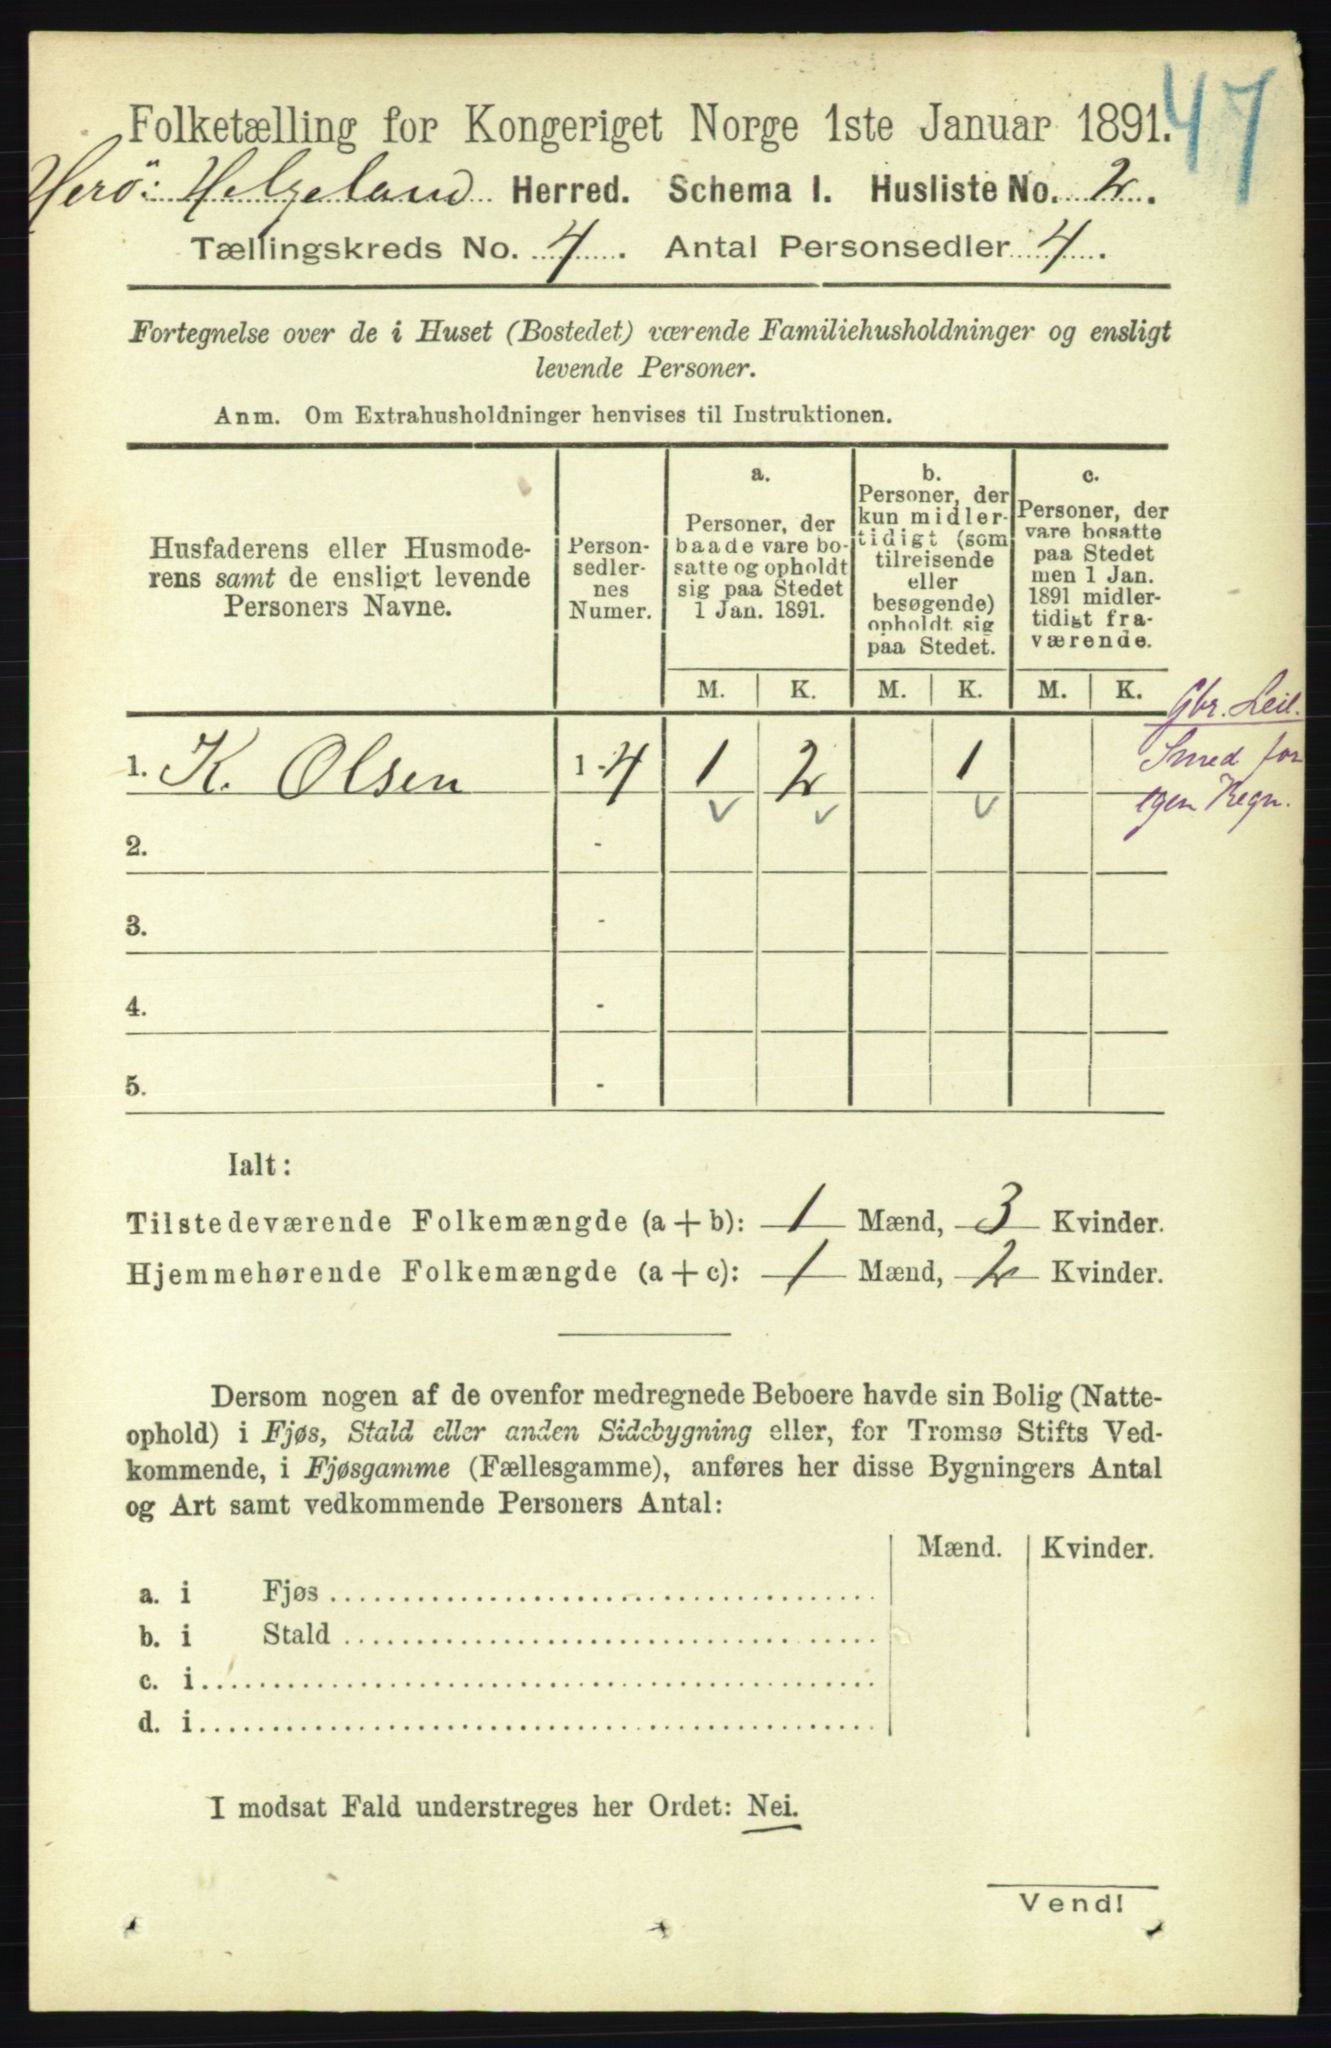 47
Folketælling for Kongeriget Norge 1ste Januar 1891.
Herö: Helgeland Herred. Schema I. Husliste No. 2.
Tællingskreds No. 4. Antal Personsedler 4.
Fortegnelse over de i Huset (Bostedet) værende Familiehusholdninger og ensligt
levende Personer.
Anm. Om Extrahusholdninger henvises til Instruktionen.
Husfaderens eller Husmode-
rens samt de ensligt levende
Personers Navne.
Person-
sedler-
nes
Numer.
a.
Personer, der
baade vare bo-
satte og opholdt
sig paa Stedet
1 Jan. 1891.
b.
Personer, der
kun midler-
tidigt (som
tilreisende
eller
besøgende)
opholdt sig
paa Stedet.
c.
Personer, der
vare bosatte
paa Stedet
men 1 Jan.
1891 midler-
tidigt fra-
værende.
M. K. M. K. M. K.
Gbr. Leil.
Smed for
egen Regn.
1. K. Olsen 1-4 1 2 1
2. -
3. -
4. -
5. -
Ialt:
Tilstedeværende Folkemængde (a + b): 1 Mænd, 3 Kvinder.
Hjemmehørende Folkemængde (a + c): 1 Mænd, 2 Kvinder.
Dersom nogen af de ovenfor medregnede Beboere havde sin Bolig (Natte-
ophold) i Fjøs, Stald eller anden Sidebygning eller, for Tromsø Stifts Ved-
kommende, i Fjøsgamme (Fællesgamme), anføres her disse Bygningers Antal
og Art samt vedkommende Personers Antal:
Mænd. Kvinder.
a. i Fjøs
b. i Stald
c. i
d. i
I modsat Fald understreges her Ordet: Nei.
Vend!